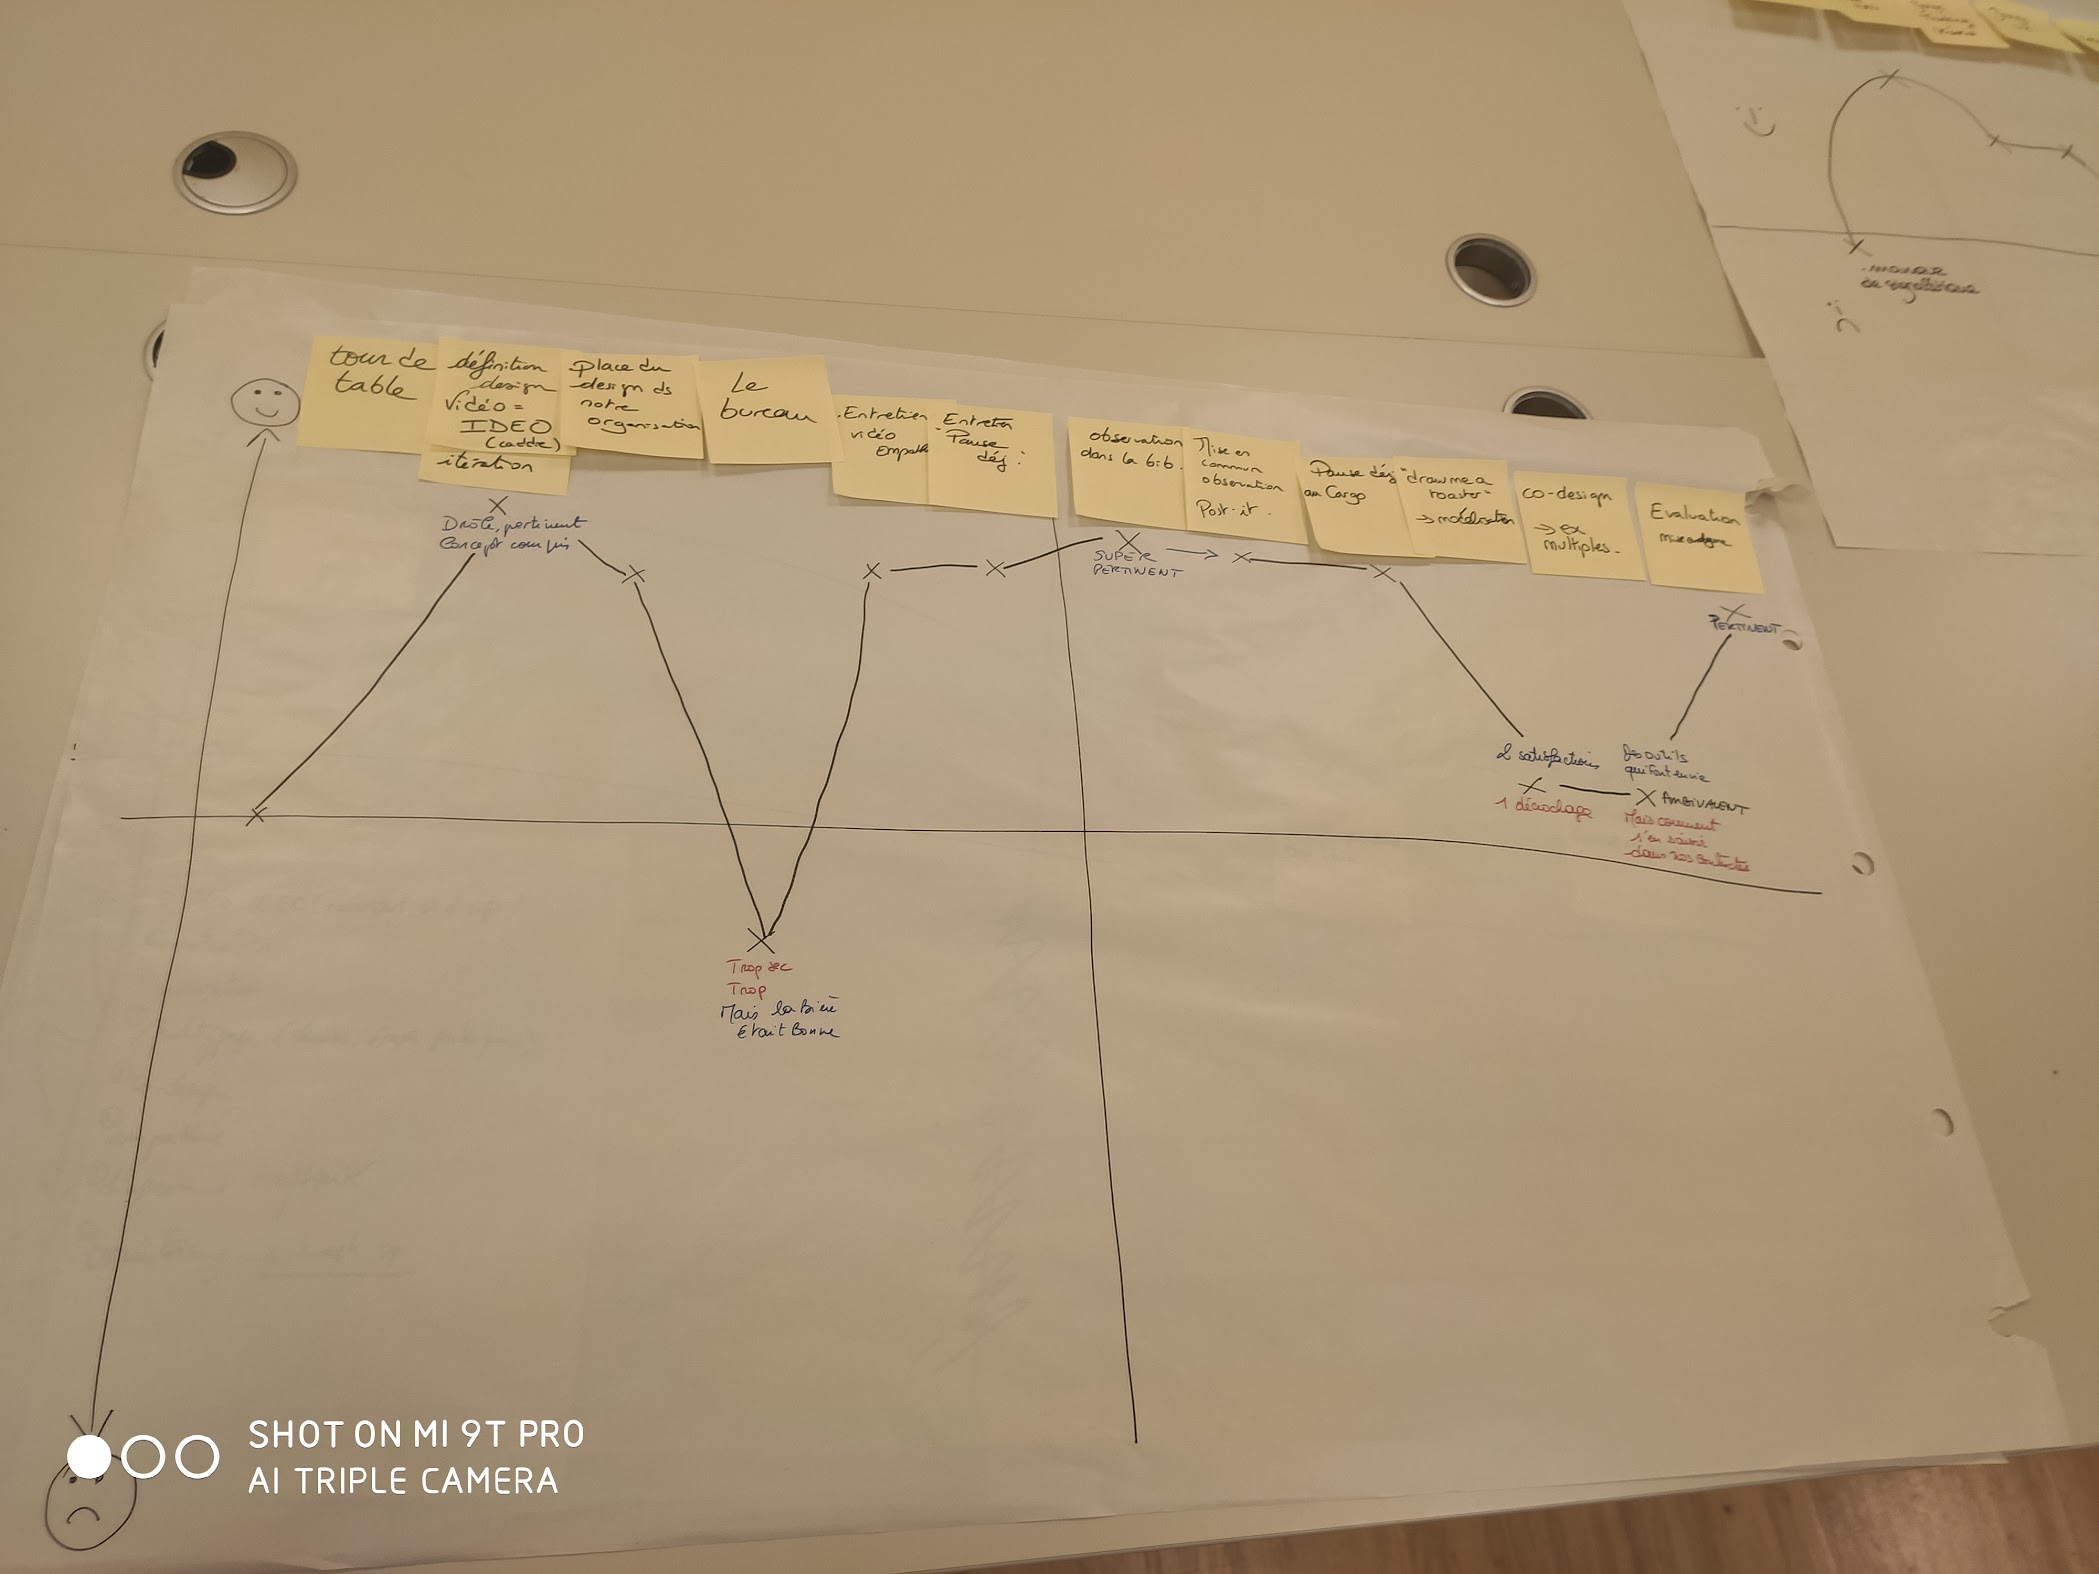 tour de
table
définition
design
Vidéo =
IDEO
(caddie)
itération
place du
design ds
notre
organisation
Le
bureau
Entretien
vidéo
Empath
Entretien
Pause
déj :
observation
dans la bib.
Mise en
commun
observation
Post-it.
Pause déj
au Cargo
"draw me a
toaster"
→ modélisation
co-design
→ ex
multiples.
Evaluation
Drôle, pertinent
Concept compris
SUPER
PERTINENT
PERTINENT
2 satisfactions
1 décrochage
Des outils
qui font envie
AMBIVALENT
Mais comment
s'en servir
dans nos contextes
Trop sec
Trop
Mais la bière
était bonne
SHOT ON MI 9T PRO
AI TRIPLE CAMERA